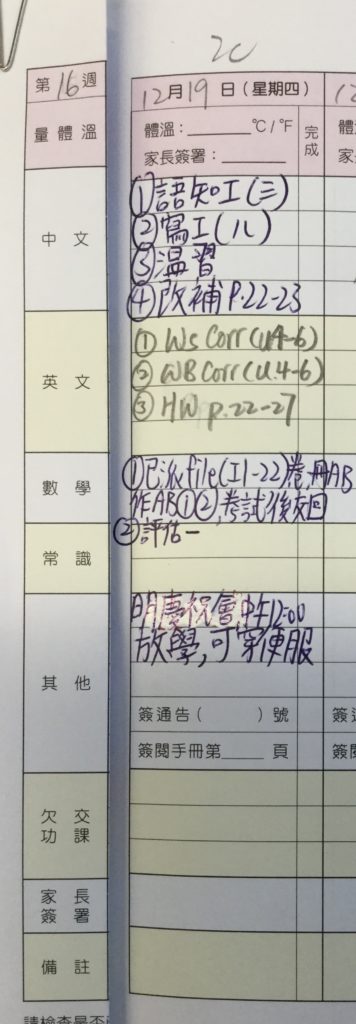 2C
第16週
12月19日(星期四)
量體溫
體溫：______°C/°F
家長簽署：______
完成
中文
①語知工(三)
②寫工(八)
③溫習
④改補P.22-23
英文
① WS Corr(U4-6)
② WB Corr(U.4-6)
③ HW p.22-27
數學
①已派file(I1-22)卷,冊AB
作AB①②,考試後交回
②評估一
常識
其他
明慶祝會中午12:00
放學,可穿便服
簽通告( )號
簽閱手冊第____頁
欠交功課
家長簽署
備註